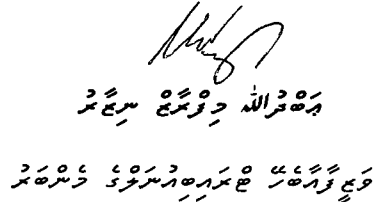 ޢަބްދުﷲ މިފްރާޒް ނިޒާރު
ވަޒީފާއާބެހޭ ޓްރައިބިއުނަލްގެ މެންބަރު